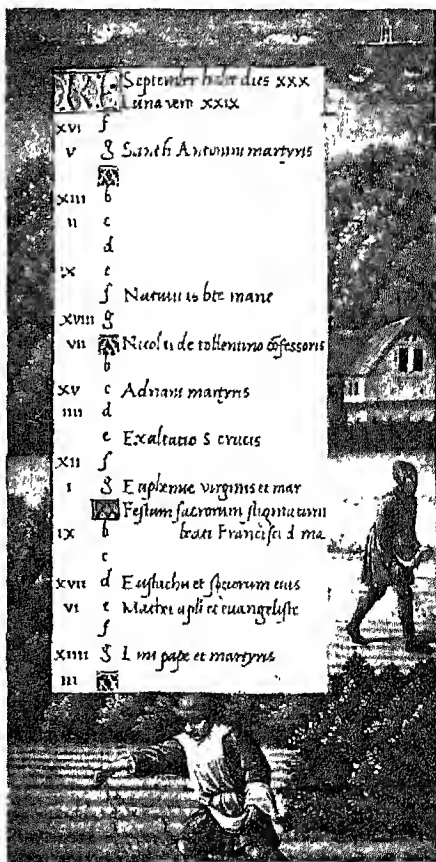 KL September habet dies xxx
Luna vero xxix
xvi f
v g Sancti Antonini martyris
A
xiii b
ii c
d
ix e
f Natiuit is bte marie
xviii g
vii A Nicolai de tollentino cōfessoris
b
xv c Adriani martyris
iiii d
e Exaltatio S crucis
xii f
i g Euphemie virginis et mar
A Festum sacrorum stigmatum
ix b beati Francisci d ma
c
xvii d Eustachii et sociorum eius
vi e Mathei apli et euangeliste
f
xiiii g pape et martyris
iii A